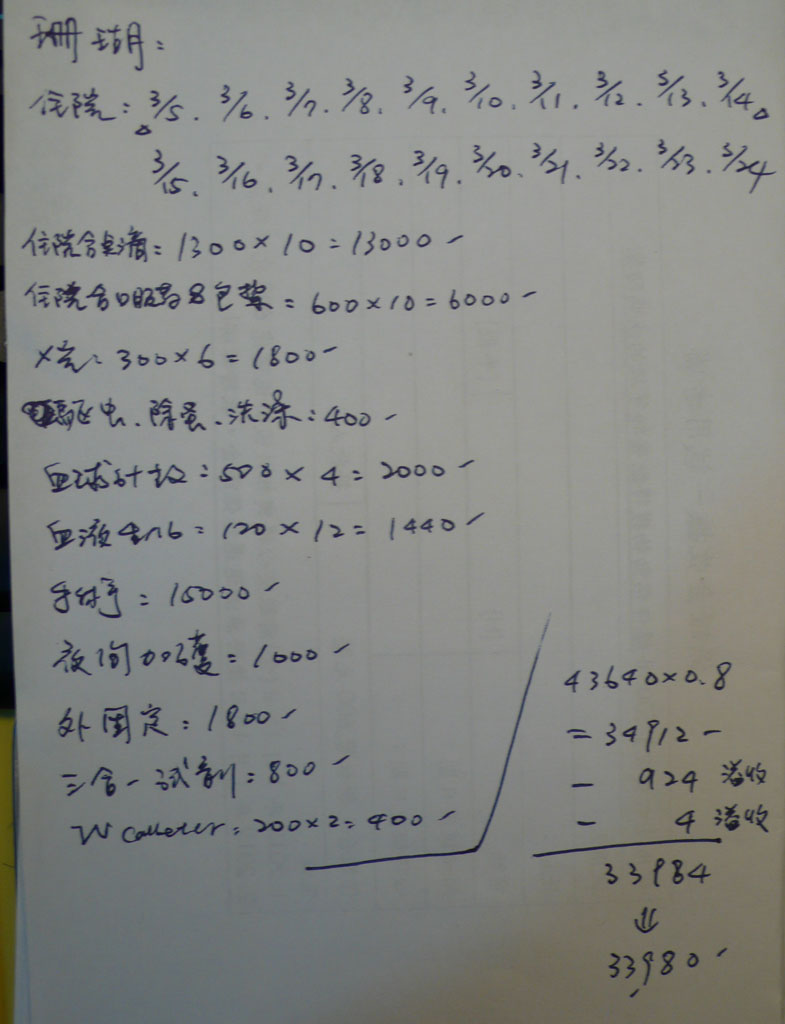 珊瑚：
住院：3/5、3/6、3/7、3/8、3/9、3/10、3/11、3/12、3/13、3/14、
3/15、3/16、3/17、3/18、3/19、3/20、3/21、3/22、3/23、3/24
住院含點滴=1300×10=13000
住院含口服藥&包紮=600×10=6000
X光：300×6=1800
驅虫、除蚤、洗滌：400
血球計數=500×4=2000
血液生化=120×12=1440
手術=15000
夜間加護=1000
外固定：1800
三合一試劑：800
IV catheter=200×2=400
43640×0.8
=34912
- 924 溢收
- 4 溢收
33984
⇓
33980